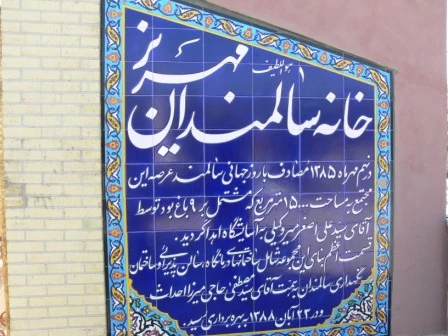 هواللطیف
خانه سالمندان مهریز
در نهم مهرماه ۱۳۸۵ مصادف با روز جهانی سالمند عرصه این
مجتمع به مساحت ۱۵۰۰۰ مترمربع که مشتمل بر ۹ باغ بود توسط
آقای سید علی اصغر میروکیلی به آسایشگاه اهدا گردید.
قسمت اعظم بنای این مجموعه شامل ساختمانهای درمانگاه سالن پذیرایی و ساختمان
نگهداری سالمندان به همت آقای سید مصطفی حاجی میرزا احداث
و در ۲۳ آبان ۱۳۸۸ به بهره برداری رسید.